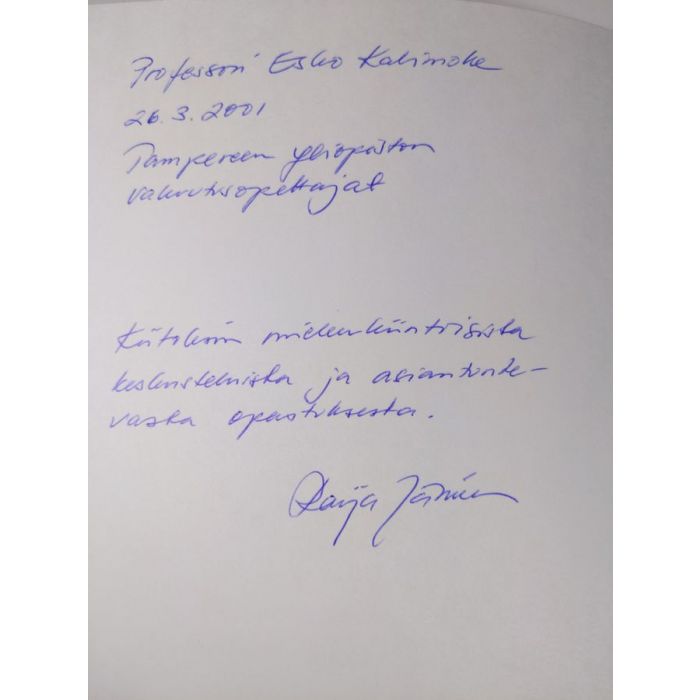 Professori Esko Kalimolle
26.3.2001
Tampereen yliopiston
vakuutusopettajat
Kiitoksin mielenkiintoisista
keskusteluista ja asiantunte-
vasta opastuksesta.
Raija